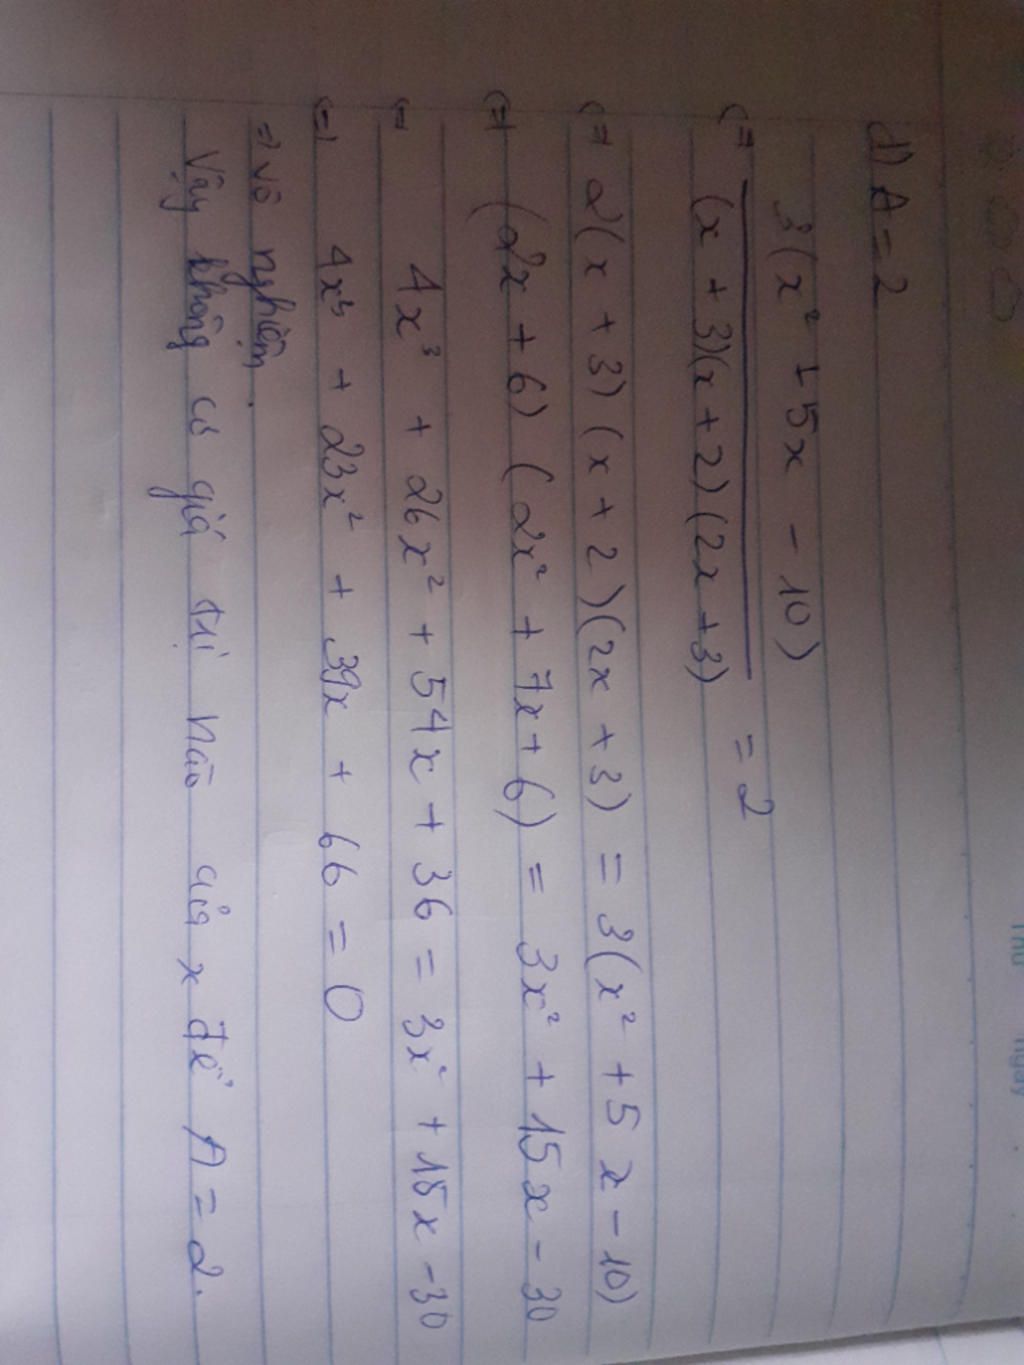 d) A = 2
3(x² + 5x - 10)
(=) ─────────── = 2
(x + 3)(x + 2)(2x + 3)
(=) 2(x + 3)(x + 2)(2x + 3) = 3(x² + 5x - 10)
(=) (2x + 6)(2x² + 7x + 6) = 3x² + 15x - 30
(= 4x³ + 26x² + 54x + 36 = 3x² + 15x - 30
(=) 4x³ + 23x² + 39x + 66 = 0
=) vô nghiệm.
Vậy không có giá trị nào của x để A = 2.
Thứ ngày